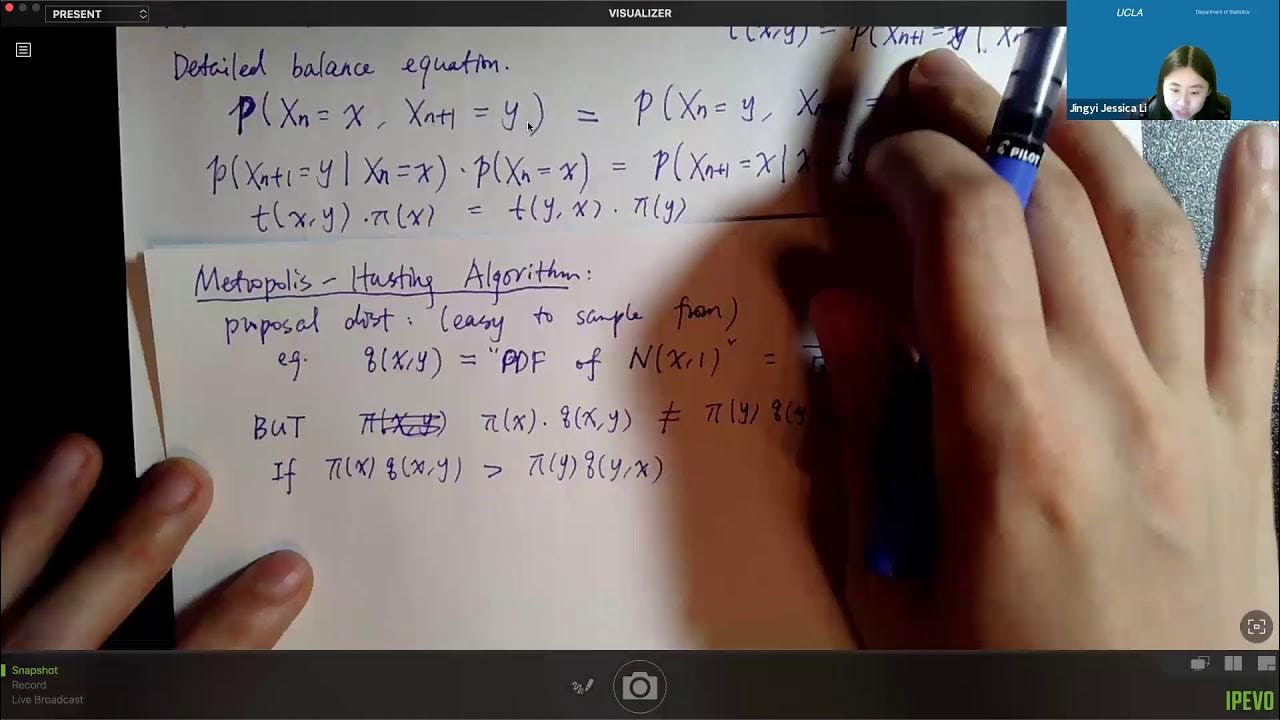 PRESENT
VISUALIZER
UCLA
Department of Statistics
Jingyi Jessica Li
t(x,y) = P(Xn+1 = y | Xn
Detailed balance equation.
P(Xn = x, Xn+1 = y) = P(Xn = y, Xn =
P(Xn+1 = y | Xn = x) · P(Xn = x) = P(Xn+1 = x | X
t(x,y) · π(x) = t(y,x) · π(y)
PILOT
Metropolis - Hasting Algorithm:
proposal dist: (easy to sample from)
eg. q(x,y) = "PDF of N(x,1)" =
BUT π(x,y) π(x) · q(x,y) ≠ π(y) q(y
If π(x) q(x,y) > π(y) q(y,x)
Snapshot
Record
Live Broadcast
IPEVO